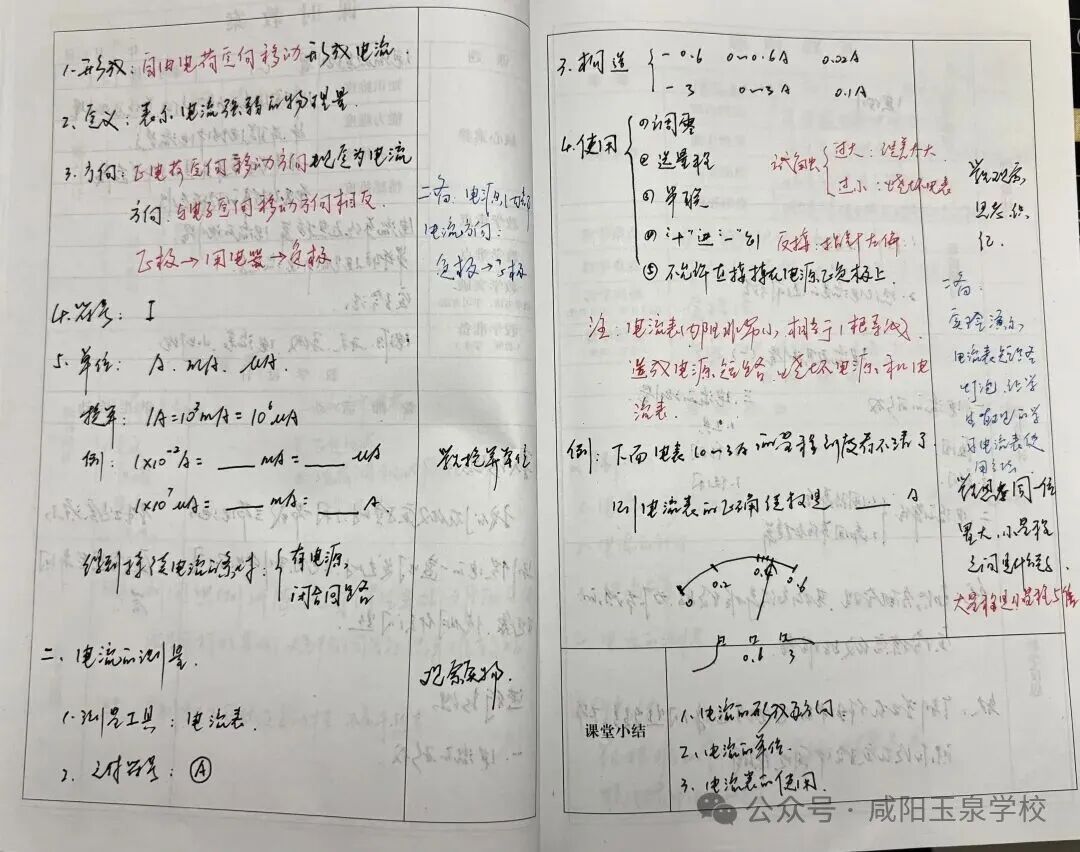 1. 形成：自由电荷定向移动形成电流
2. 定义：表示电流强弱的物理量
3. 方向：正电荷定向移动方向规定为电流
方向，与电子定向移动方向相反.
正极→用电器→负极
二备：电源内部
电流方向：
负极→正极
4. 符号： I
5. 单位： A. mA. μA.
换算： 1A=10³mA=10⁶μA
例： 1×10⁻²A= ___ mA= ___ μA
1×10⁷μA= ___ mA= ___ A
学生换算单位
得到持续电流的条件：{有电源,
闭合回路
二、电流的测量.
观察实物.
1. 测量工具：电流表.
2. 元件符号：Ⓐ
3. 构造 { -0.6 0~0.6A 0.02A
-3 0~3A 0.1A
4. 使用 { ① 调零
② 选量程 试触 { 过大：误差大
过小：烧坏电表
③ 串联
④ "+"进"-"出 反接：指针左偏
⑤ 不允许直接接在电源正负极上.
学生观察,
思考,
记.
注：电流表内阻非常小,相当于1根导线,
造成电源短路,烧坏电源和电
流表.
二备：
实验演示,
电流表短路
灯泡,让学
生
习电流表使
用方法.
例：下面电表0~3A的量程刻度看不清了
则电流表的正确值权是 ___ A
0 0.2 0.4 0.6
- 0.6 3
学生思考同一位
置大、小量程
之间是什么关系.
大量程是小量程5倍
课堂小结
1. 电流的形成及方向.
2. 电流的单位.
3. 电流表的使用.
公众号·咸阳玉泉学校